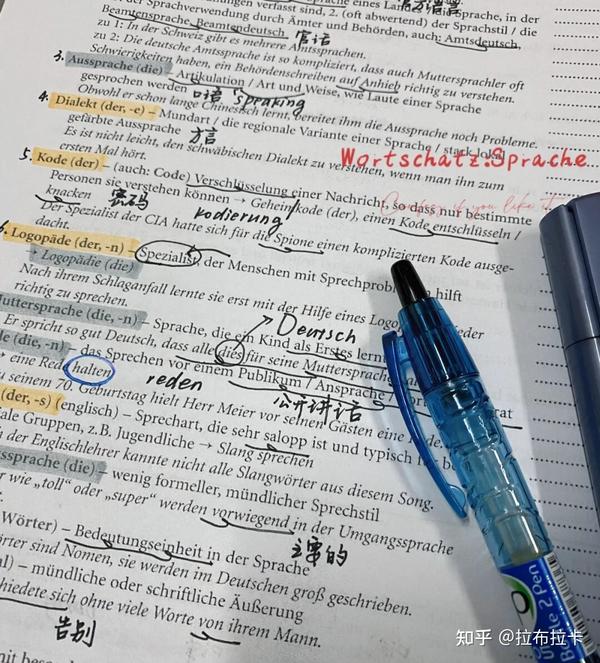 verfasst sind, 2. (oft abwertend) der Sprachstil / die
Sprachverwendung durch Ämter und Behörden, auch: Amtsdeutsch,
Beamtensprache, Beamtendeutsch. 官话
zu 1: In der Schweiz gibt es mehrere Amtssprachen.
zu 2: Die deutsche Amtssprache ist so kompliziert, dass auch Muttersprachler oft
Schwierigkeiten haben, ein Behördenschreiben auf Anhieb richtig zu verstehen.
3. Aussprache (die) – Artikulation / Art und Weise, wie Laute einer Sprache
gesprochen werden 口语 speaking
Obwohl er schon lange Chinesisch lernt, bereitet ihm die Aussprache noch Probleme.
4. Dialekt (der, -e) – Mundart / die regionale Variante einer Sprache / stark lokal
gefärbte Aussprache 方言
Es ist nicht leicht, den schwäbischen Dialekt zu verstehen, wenn man ihn zum
ersten Mal hört.
Wortschatz:Sprache
5. Kode (der) – (auch: Code) Verschlüsselung einer Nachricht, so dass nur bestimmte
Personen sie verstehen können → Geheimkode (der), einen Kode entschlüsseln /
knacken 密码 kodierung
Der Spezialist der CIA hatte sich für die Spione einen komplizierten Kode ausge-
dacht.
6. Logopäde (der, -n) – Spezialist, der Menschen mit Sprechproblemen hilft
→ Logopädie (die)
Nach ihrem Schlaganfall lernte sie erst mit der Hilfe eines Logopäden wieder
richtig zu sprechen.
Muttersprache (die, -n) – Sprache, die ein Kind als Erstes lernt
Deutsch
Er spricht so gut Deutsch, dass alle dies für seine Muttersprache halten
(die, -n) – das Sprechen vor einem Publikum / Ansprache /
→ eine Rede halten reden 公开讲话
zu seinem 70. Geburtstag hielt Herr Meier vor seinen Gästen eine Rede.
(der, -s) (englisch) – Sprechart, die sehr salopp ist und typisch für
Gruppen, z.B. Jugendliche → Slang sprechen
der Englischlehrer kannte nicht alle Slangwörter aus diesem Song.
(die) – wenig formeller, mündlicher Sprechstil
wie „toll“ oder „super“ werden vorwiegend in der Umgangssprache
主要的
Wörter) – Bedeutungseinheit in der Sprache
sind Nomen, sie werden im Deutschen groß geschrieben.
– mündliche oder schriftliche Äußerung
sich ohne viele Worte von ihrem Mann.
告别
知乎 @拉布拉卡